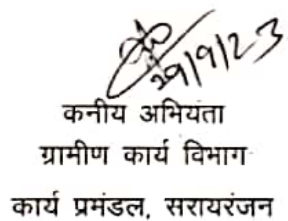 29/9/23
कनीय अभियंता
ग्रामीण कार्य विभाग
कार्य प्रमंडल, सरायरंजन